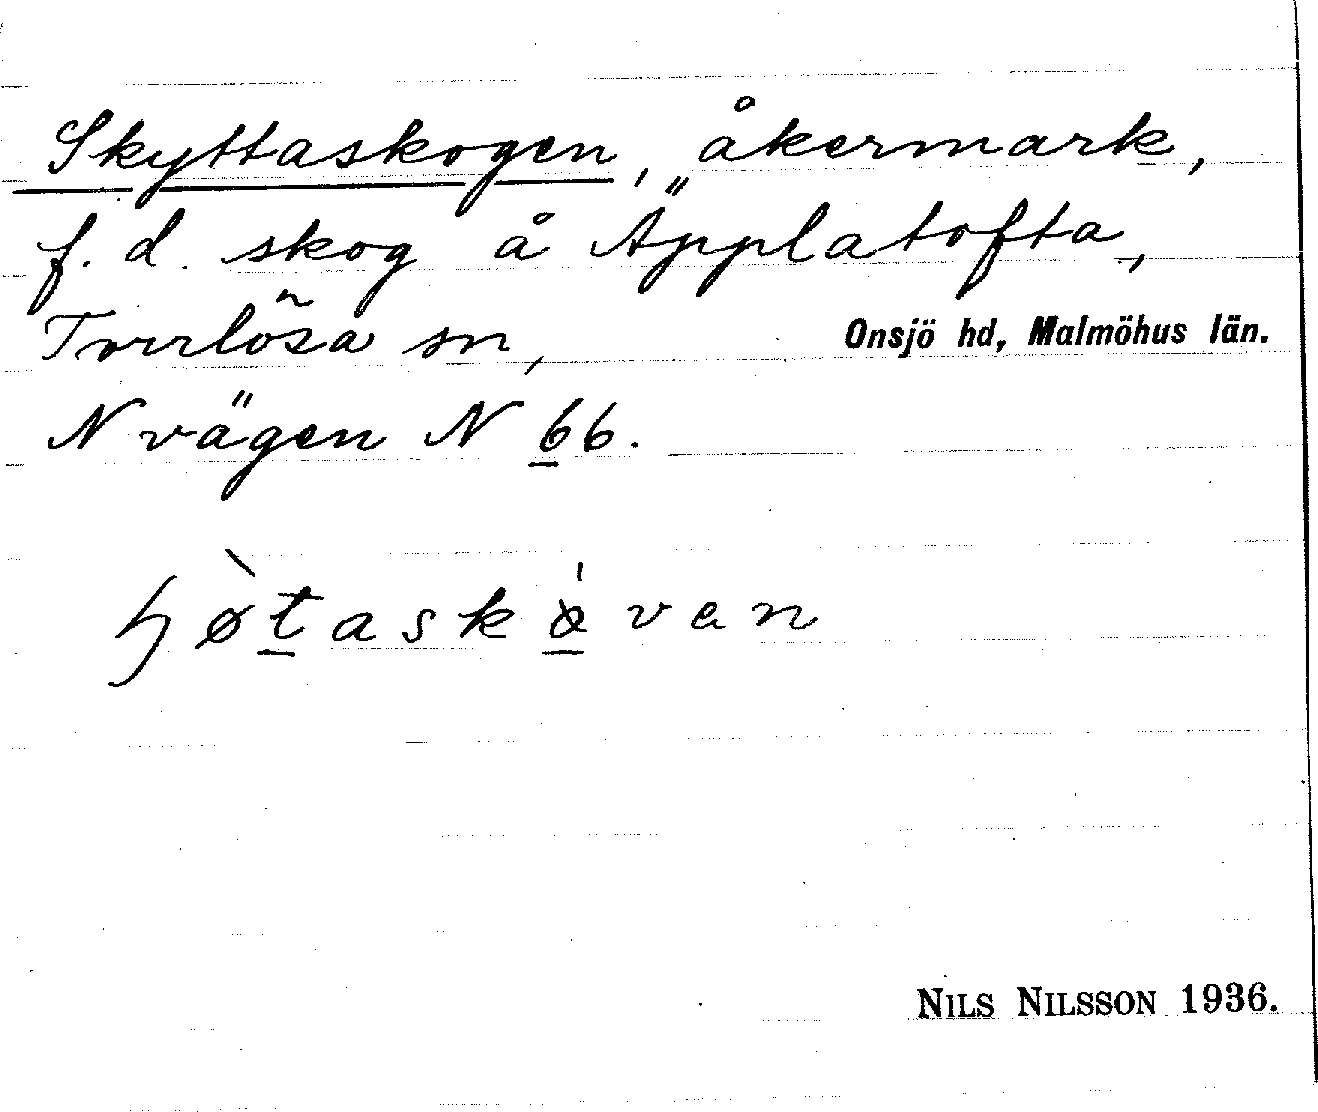 Skyttaskogen, åkermark,
f. d. skog å Äpplatofta,
Torrlösa sn, Onsjö hd, Malmöhus län.
N vägen N 66.
NILS NILSSON 1936.